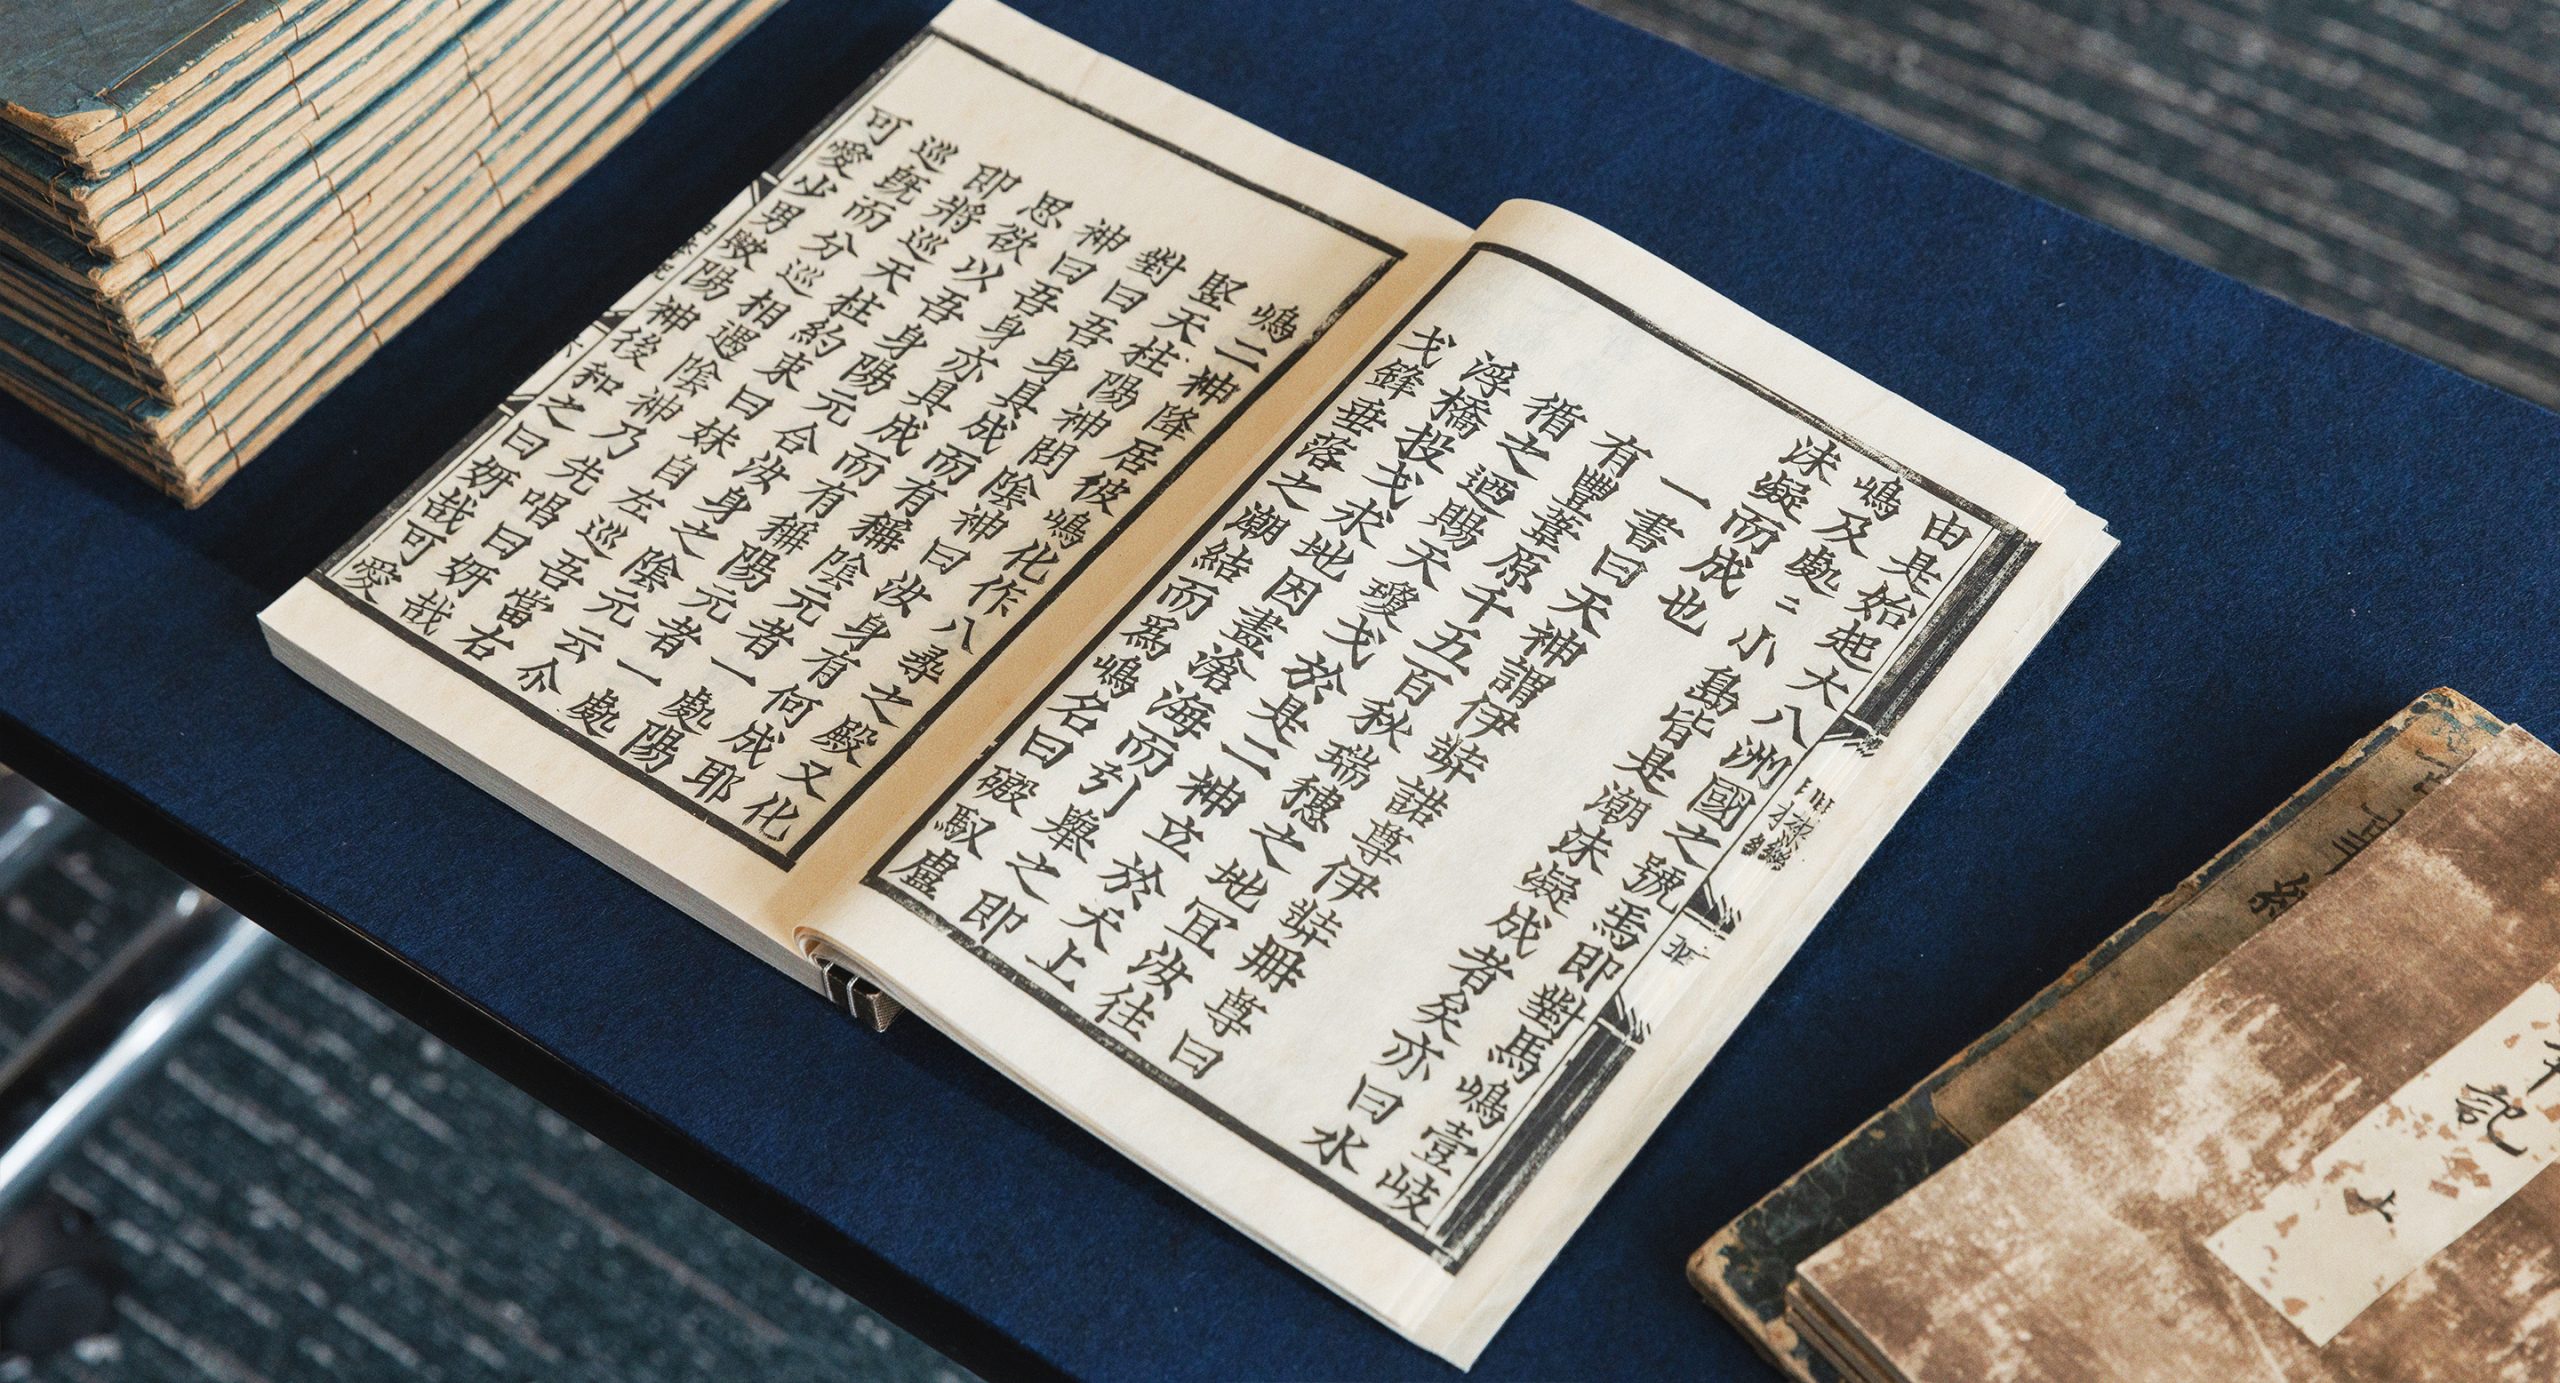 由是始起大八洲國之號焉即對馬嶋壹岐
嶋及處〻小島皆是潮沫凝成者矣亦曰水
沫凝而成也
一書曰天神謂伊弉諾尊伊弉冊尊曰
有豐葦原千五百秋瑞穗之地宜汝往
循之廼賜天瓊戈於是二神立於天上
浮橋投戈求地因畫滄海而引舉之即
戈鋒垂落之潮結而爲嶋名曰磤馭盧
嶋二神降居彼嶋化作八尋之殿又化
竪天柱陽神問陰神曰汝身有何成耶
對曰吾身具成而有稱陰元者一處陽
神曰吾身亦具成而有稱陽元者一處
思欲以吾身陽元合汝身之陰元云尒
即將巡天柱約束曰妹自左巡吾當右
巡既而分巡相遇陰神乃先唱曰妍哉
可愛少男歟陽神後和之曰妍哉可愛
記 上